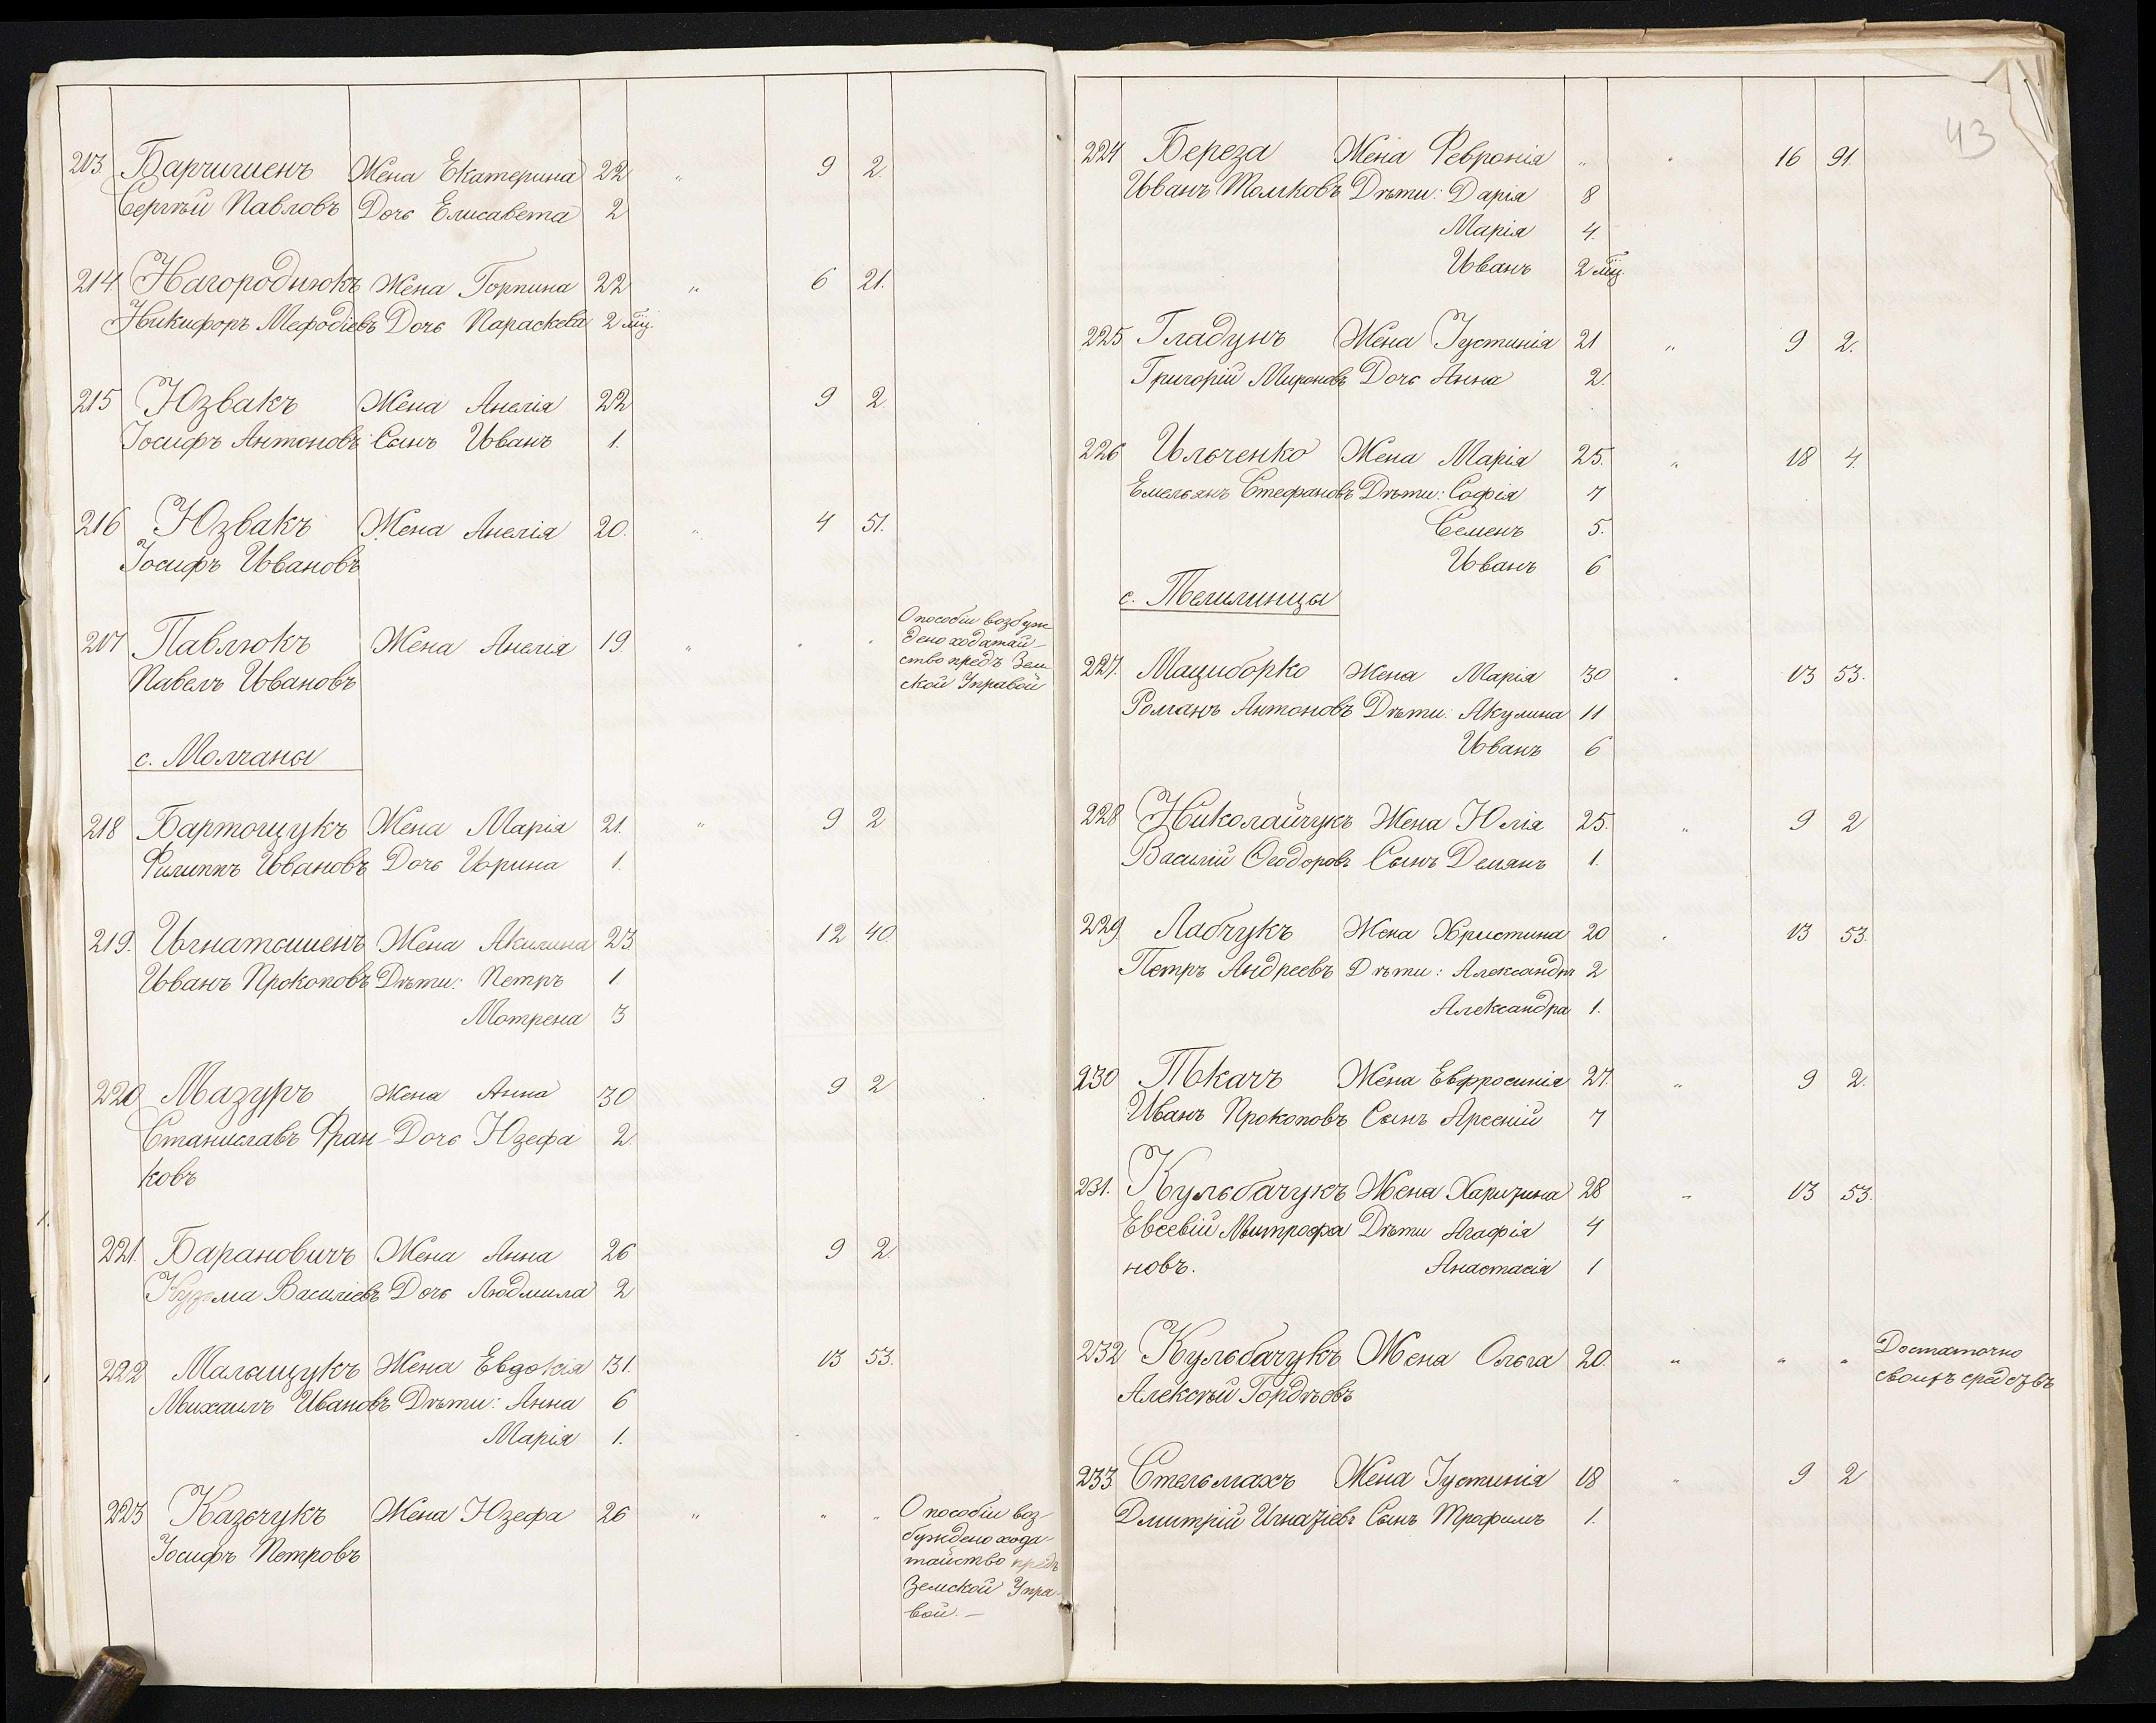 213. Барчишенъ Жена Екатерина 22 „ 9 2.
Сергѣй Павловъ Дочь Елисавета 2
214 Нагороднюкъ Жена Горпина 22 „ 6 21.
Никифоръ Мефодіевъ Дочь Параскева 2 мц.
215 Юзвакъ Жена Анелія 22 9 2.
Іосифъ Антоновъ Сынъ Иванъ 1.
216 Юзвакъ Жена Анелія 20. „ 4 51.
Іосифъ Ивановъ
217 Павлюкъ Жена Анелія 19. „ „ „ О пособіи возбуж
Павелъ Ивановъ дено ходатай-
ство предъ Зем
ской Управой
с. Молчаны
218 Бартощукъ Жена Марія 21. „ 9 2
Филиппъ Ивановъ Дочь Ирина 1.
219. Игнатишенъ Жена Акилина 23 12 40.
Иванъ Прокоповъ Дѣти: Петръ 1.
Мотрена 3
220 Мазуръ Жена Анна 30 9 2
Станиславъ Фран- Дочь Юзефа 2.
ковъ
221. Барановичъ Жена Анна 26 9 2.
Кузьма Василіевъ Дочь Людмила 2
222 Малащукъ Жена Евдокія 31. 13 53.
Михаилъ Ивановъ Дѣти: Анна 6
Марія 1.
223 Казьчукъ Жена Юзефа 26 „ „ „ О пособіи воз-
Іосифъ Петровъ буждено хода-
тайство предъ
Земской Упра-
вой. —
43
224 Береза Жена Февронія „ „ 16 91.
Иванъ Дѣти: Дарія 8
Марія 4.
Иванъ 2 мц.
225 Гладунъ Жена Іустинія 21 „ 9 2.
Григорій Мироновъ Дочь Анна 2.
226 Ильченко Жена Марія 25. „ 18 4.
Емельянъ Стефановъ Дѣти: Софія 7
Семенъ 5.
Иванъ 6
с. Телилинцы
227. Мациборко Жена Марія 30 „ 13 53.
Романъ Антоновъ Дѣти: Акулина 11
Иванъ 6
228 Николайчукъ Жена Юлія 25. „ 9 2
Василій Ѳеодоровъ Сынъ Демянъ 1.
229. Лабчукъ Жена Христина 20 „ 13 53.
Петръ Андреевъ Дѣти: Александръ 2
Александра 1.
230 Ткачъ Жена Евфросинія 27. „ 9 2.
Иванъ Прокоповъ Сынъ Арсеній 7
231. Кульбачукъ Жена Харитина 28 „ 13 53.
Евсевій Митрофа Дѣти Агафія 4
новъ. Анастасія 1
232 Кульбачукъ Жена Ольга 20. „ „ „ Достаточно
Алексѣй Гордѣевъ своихъ средствъ
233 Стельмахъ Жена Іустинія 18 „ 9 2
Дмитрій Игнатіевъ Сынъ Трофимъ 1.